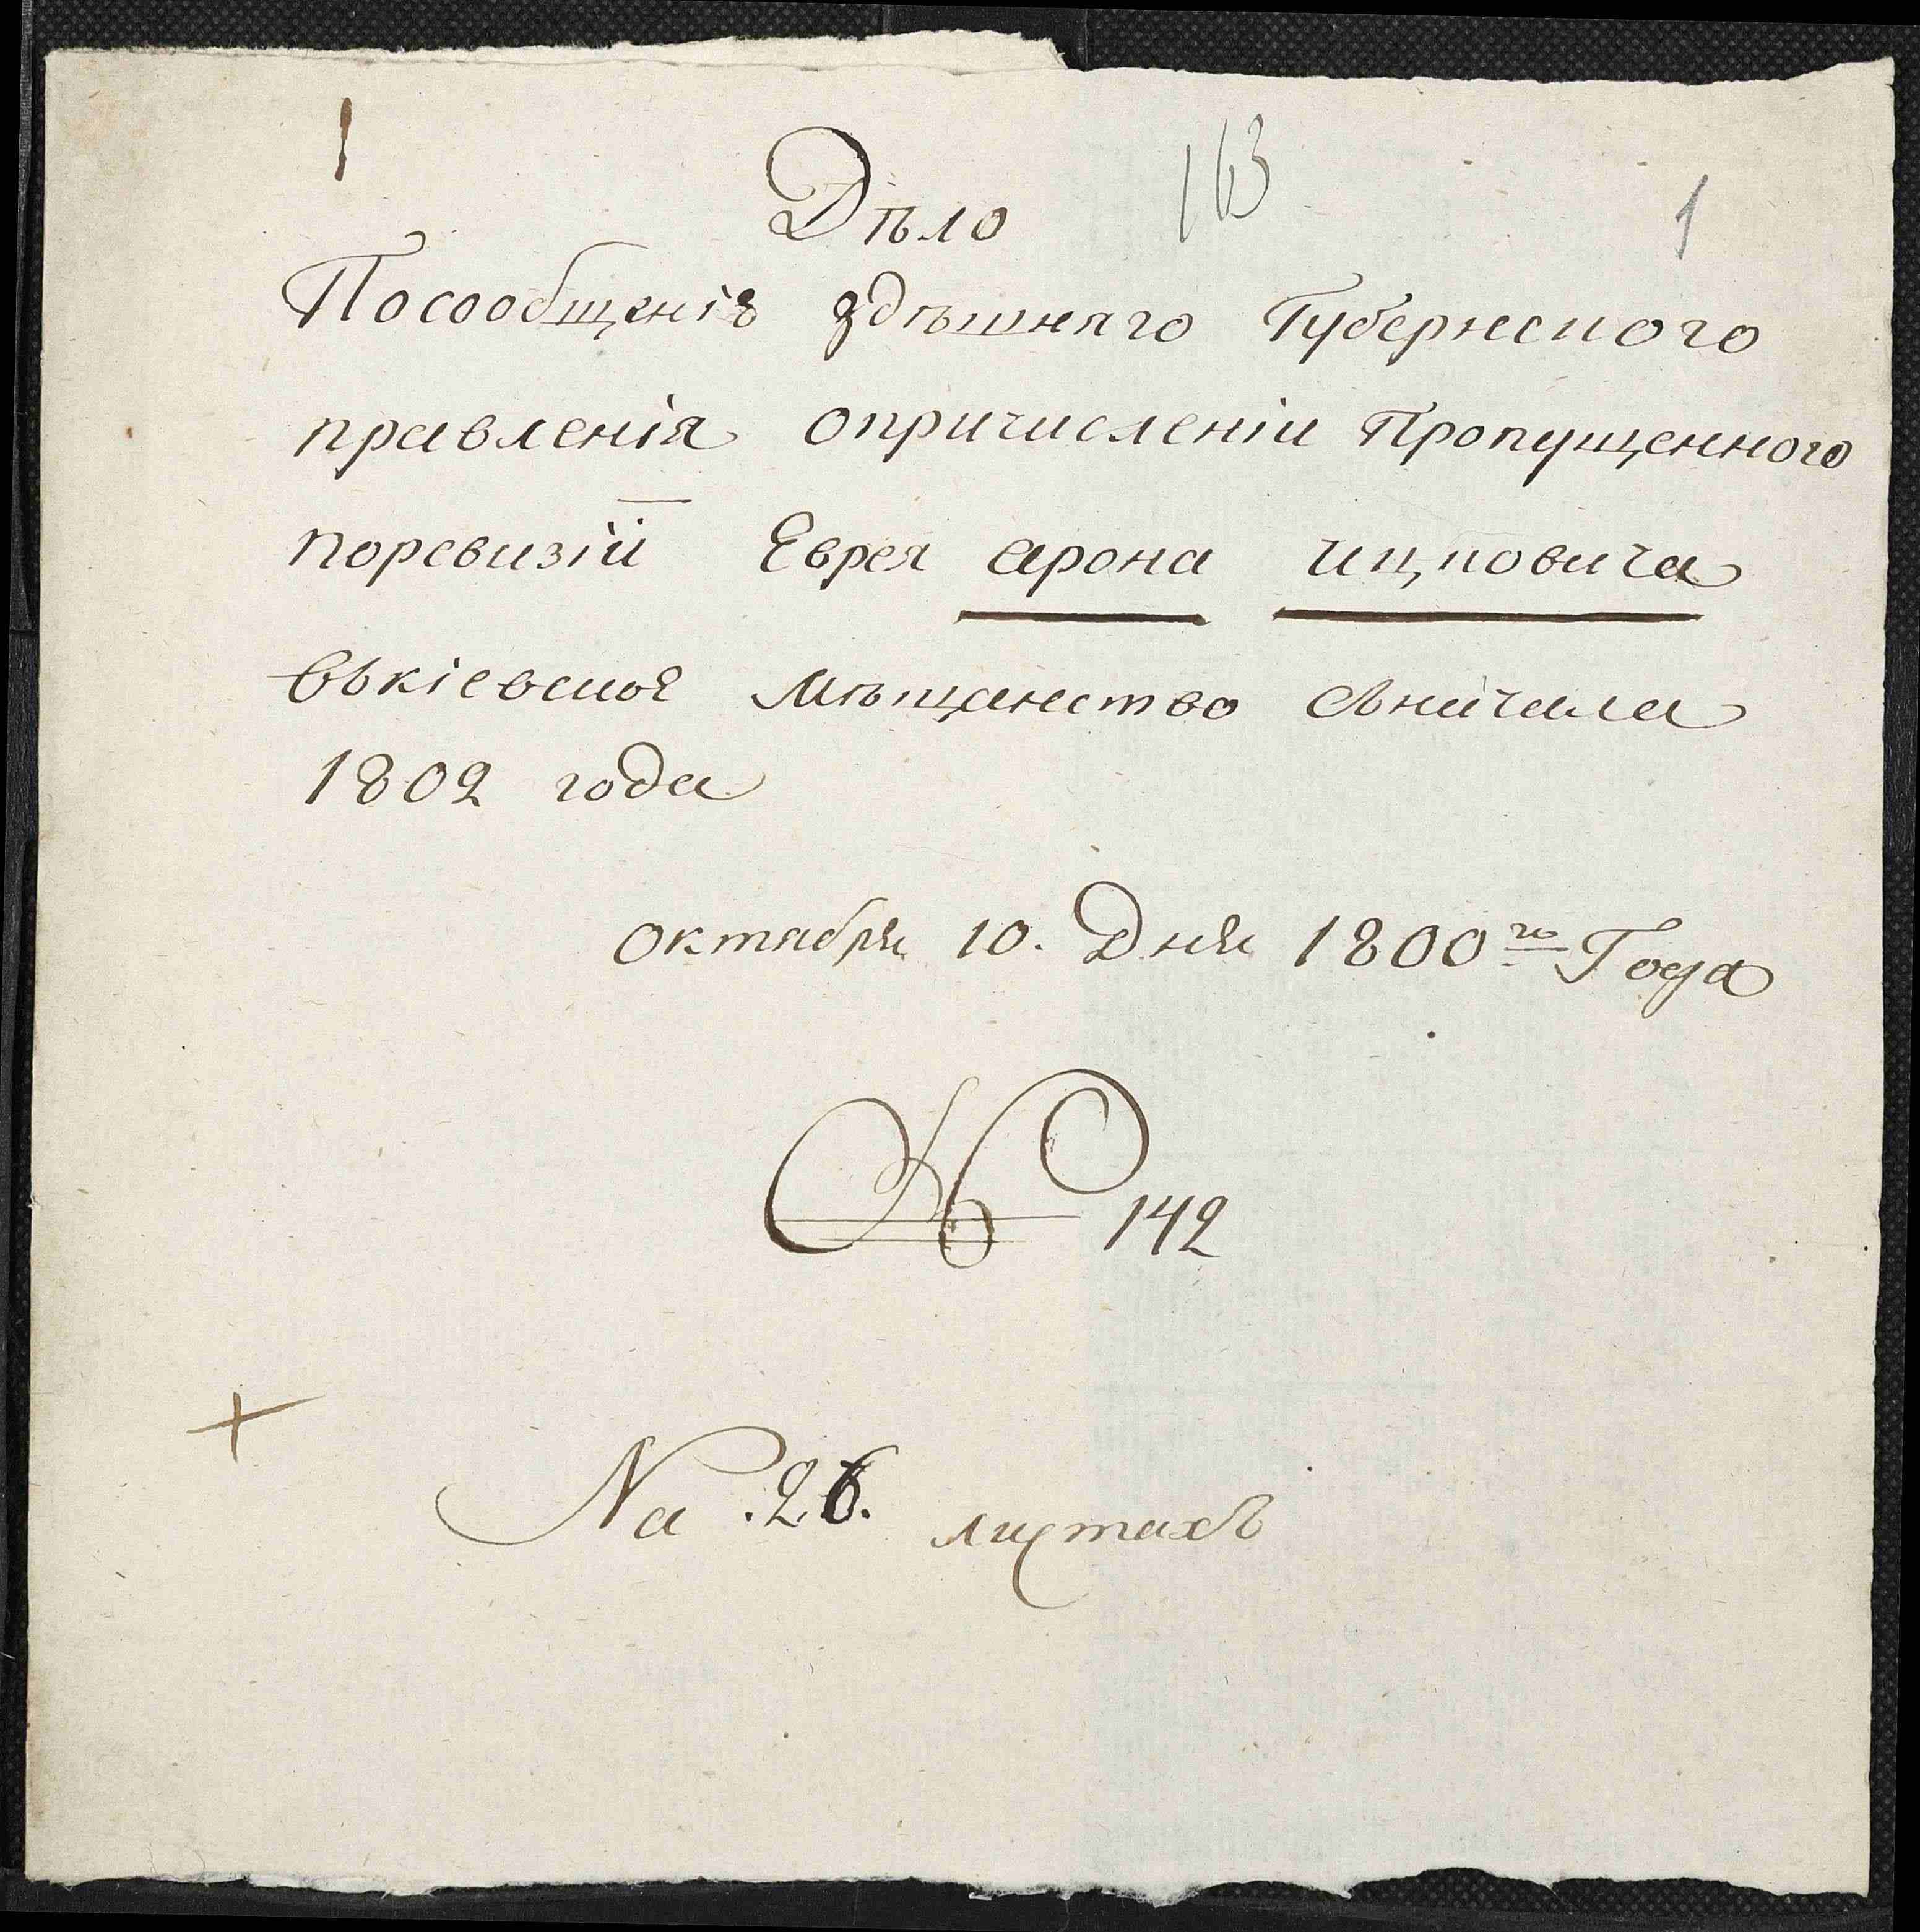 1
163
1
Дѣло
Посообщенію здѣшняго Губернского
правленія опричисленіи Пропущенного
поревизіи Еврея арона ицковича
въкіевское мѣщанство сначала
1802 года
октября 10. Дня 1800го Года
№ 142
На .26. листахъ